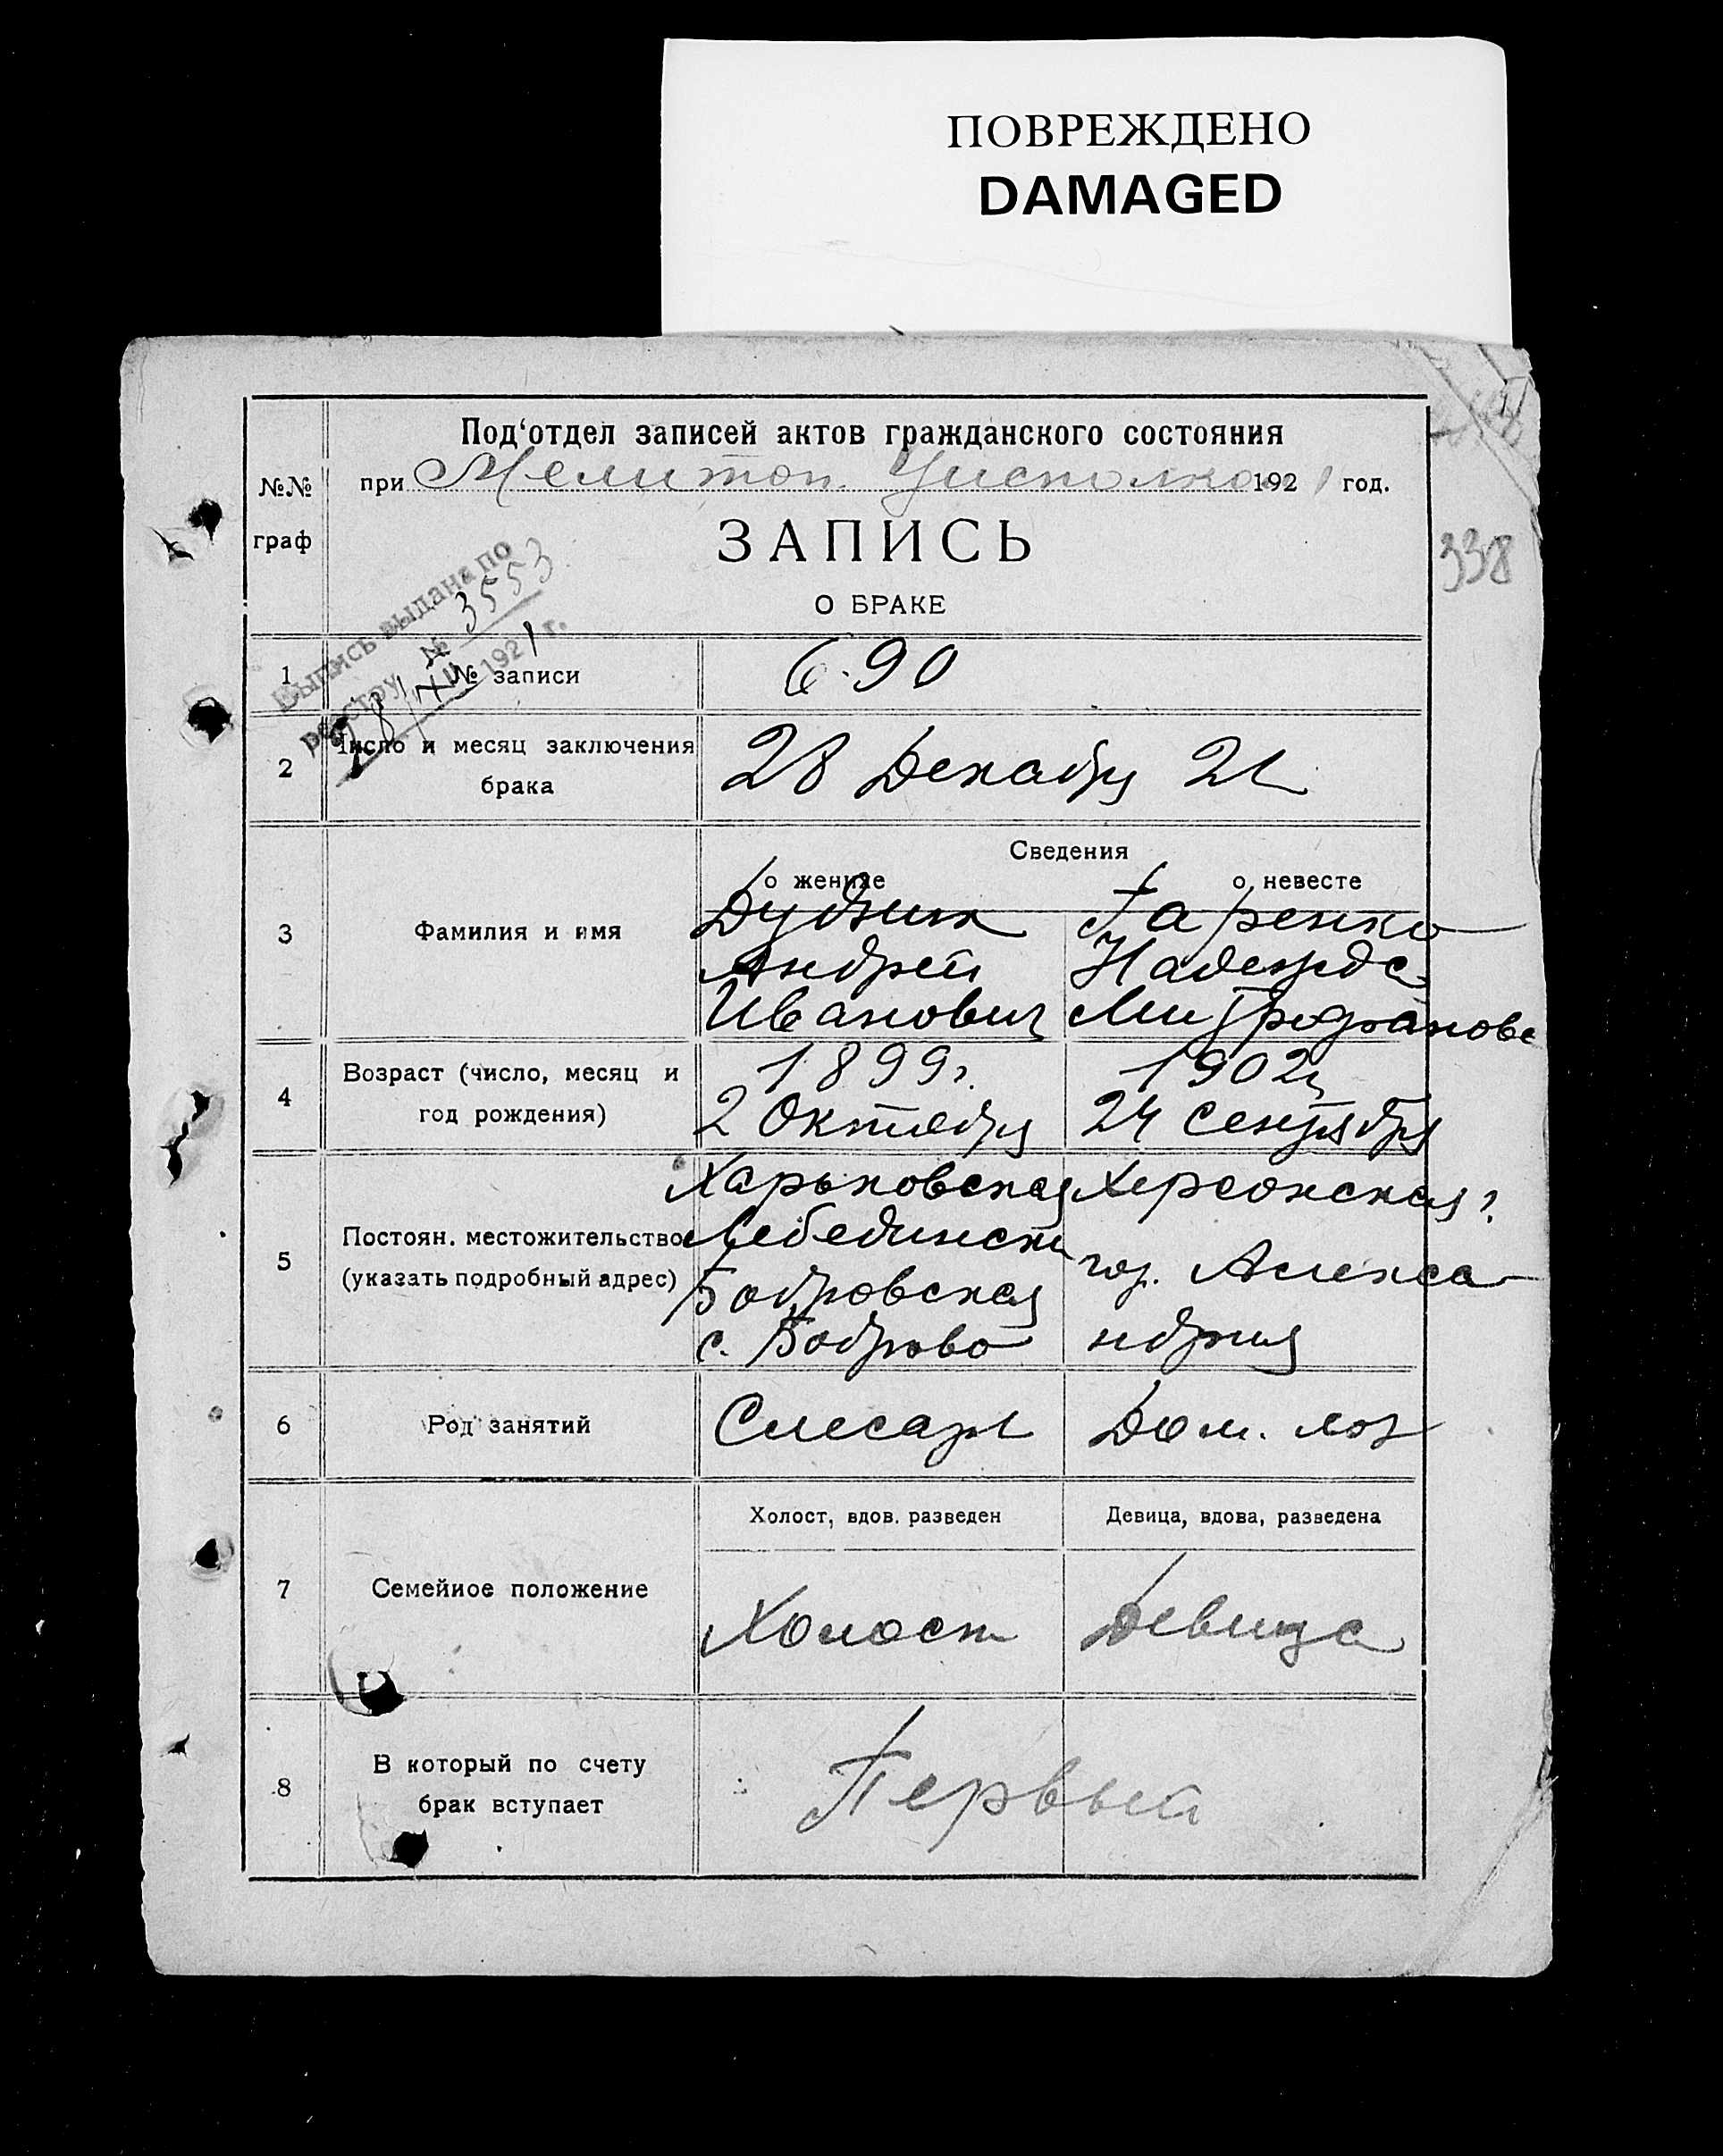 ПОВРЕЖДЕНО
DAMAGED
Под‘отдел записей актов гражданского состояния
при Мелитоп. Уисполко. 1921 год.
№№
граф
ЗАПИСЬ
О БРАКЕ
338
Выпись выдана по
реестру № 3553
28/XII 1921 г.
1 № записи 690
2 Число и месяц заключения
брака
28 Декабря 21
Сведения
о женихе о невесте
3 Фамилия и имя
Дудник Гаренко
Андрей Надежда
Иванович Митрофанова
4 Возраст (число, месяц и
год рождения)
1899г. 1902г
2 Октября 24 сентября
5 Постоян. местожительство
(указать подробный адрес)
Харьковская Херсонская г.
Лебединск
гор. Алекса-
Бобровская
с. Боброво ндрия
6 Род занятий Слесарь Дом. хоз
Холост, вдов. разведен Девица, вдова, разведена
7 Семейное положение
Холост Девица
8 В который по счету
брак вступает
Первый